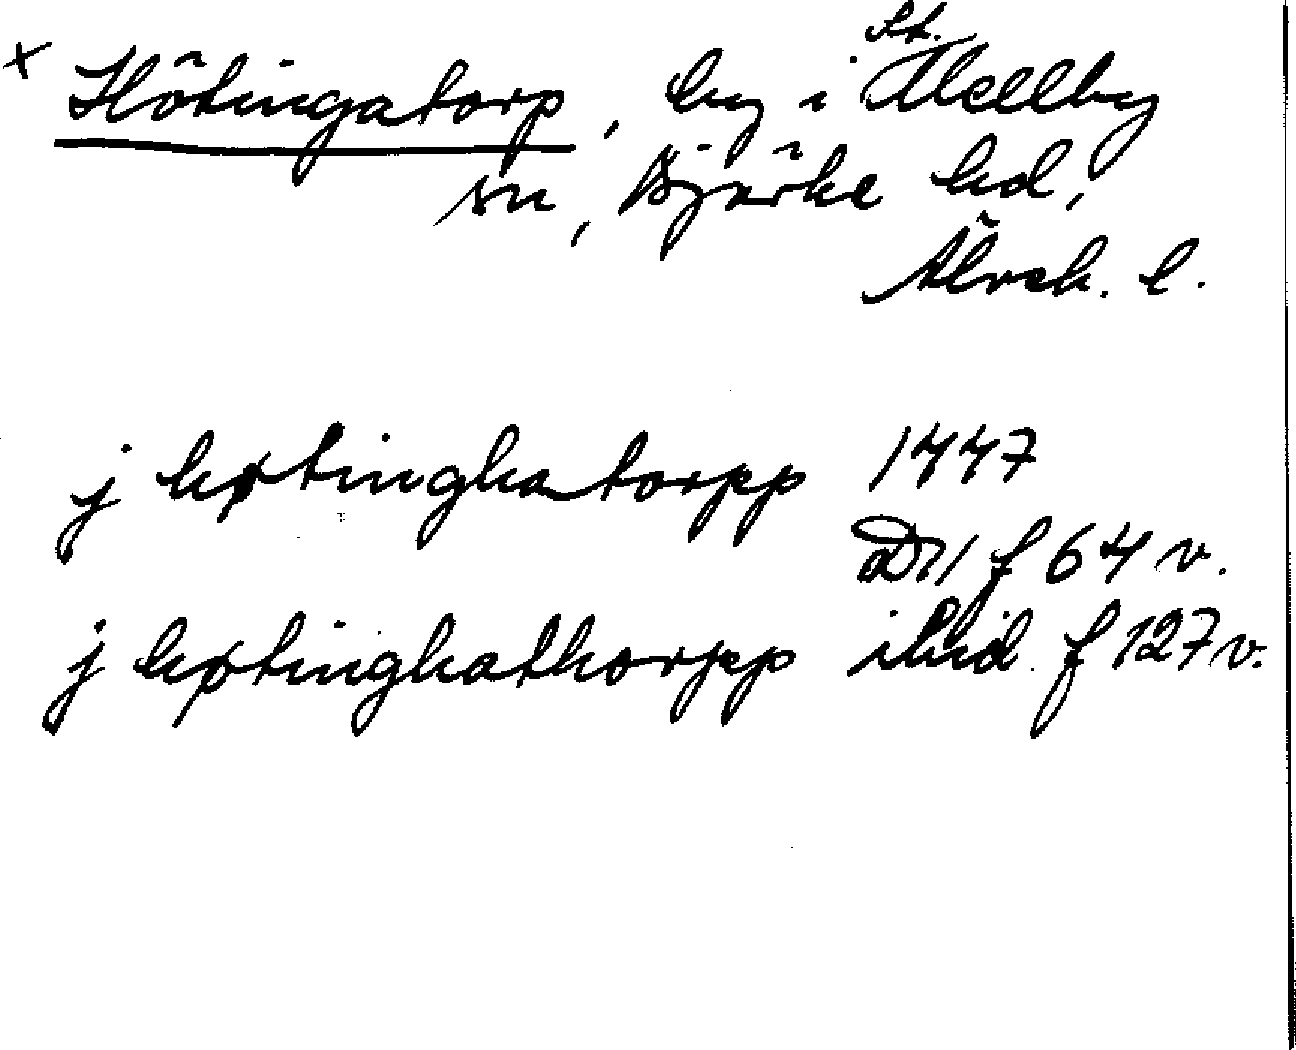 x Hötingatorp, by i St. Mellby
sn, Bjärke hd,
Älvsb. l.
j høtingha torpp 1447
DN f 64 v.
j høtinghathorpp ibid. f 127 v.